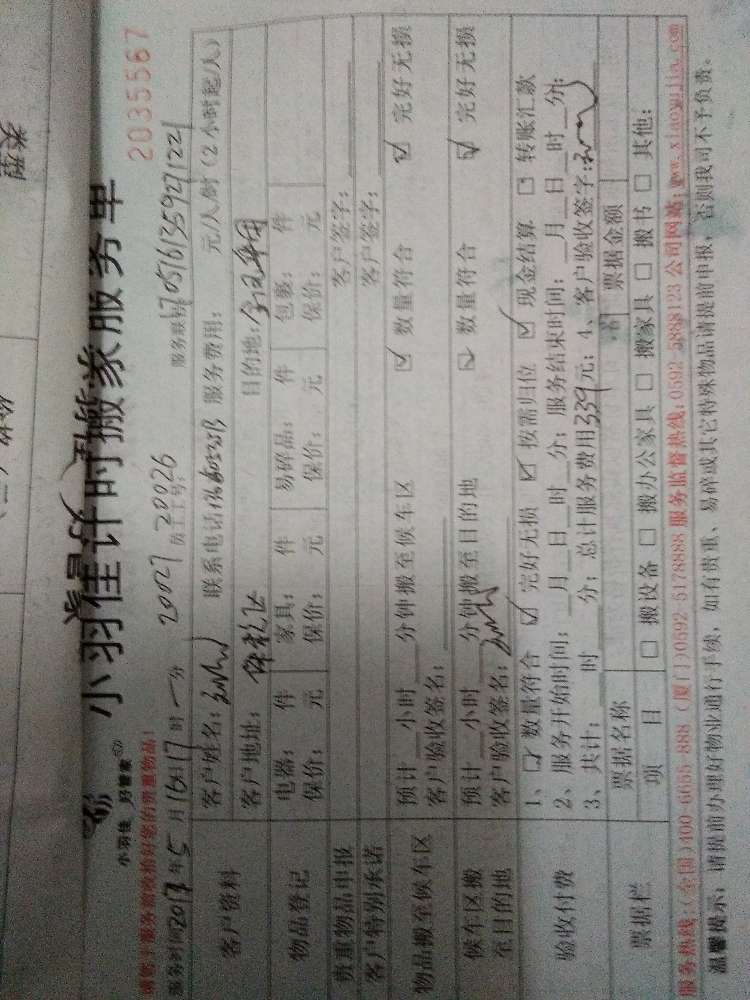 小羽佳计时搬家服务单
2035567
小羽佳 好管家
服务时间 2017年5月16日17时一分 20027 20026 员工工号: 服务联
客户资料
客户姓名: 联系电话 服务费用: 元/人/时(2小时起/人)
客户地址: 目的地:
物品登记
电器: 件 家具: 件 易碎品: 件 包裹: 件
保价: 元 保价: 元 保价: 元 保价: 元
贵重物品申报 客户签字:
客户特别承诺 客户签字:
物品搬至候车区
预计 小时 分钟搬至候车区 ☑ 数量符合 ☑ 完好无损
客户验收签名:
候车区搬至目的地
预计 小时 分钟搬至目的地 ☑ 数量符合 ☑ 完好无损
客户验收签名:
验收付费
1、☑ 数量符合 ☑ 完好无损 ☑ 按需归位 ☑ 现金结算 □ 转账汇款
2、服务开始时间: 月 日 时 分; 服务结束时间: 月 日 时 分;
3、共计: 时 分; 总计服务费用339元; 4、客户验收签字:
票据栏
票据名称 票据金额
项目 □ 搬设备 □ 搬办公家具 □ 搬家具 □ 搬书 □ 其他:
服务热线:(全国)400-6655-888 (厦门)0592 5178888 服务监督热线:0592-5888123 公司网站:www.xiaoyujia.com
温馨提示: 请提前办理好物业通行手续, 如有贵重、易碎或其它特殊物品请提前申报, 否则我司不予负责。
类型